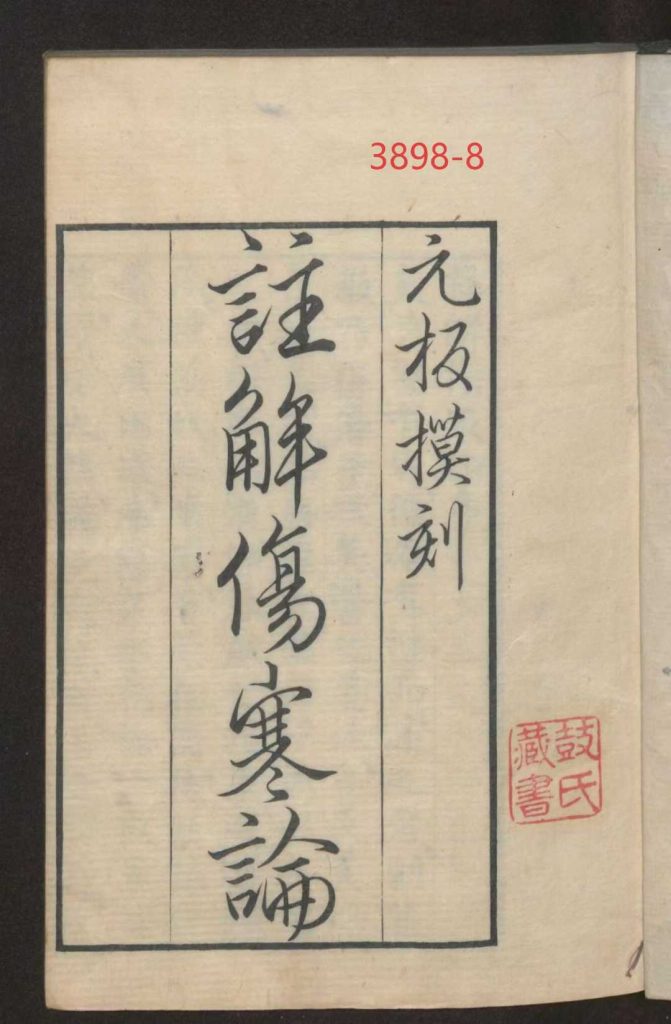 3898-8
元板摸刻
註解傷寒論
氏
藏書